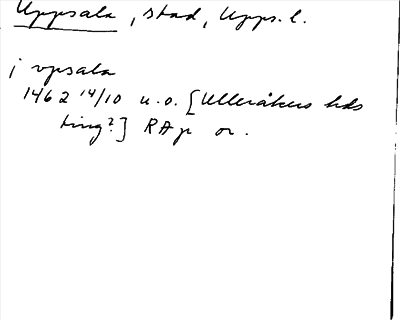 Uppsala, stad, Upps. l.
j vpsala
1462 14/10 u.o. [Ulleråkers hds
ting?] RAp or.